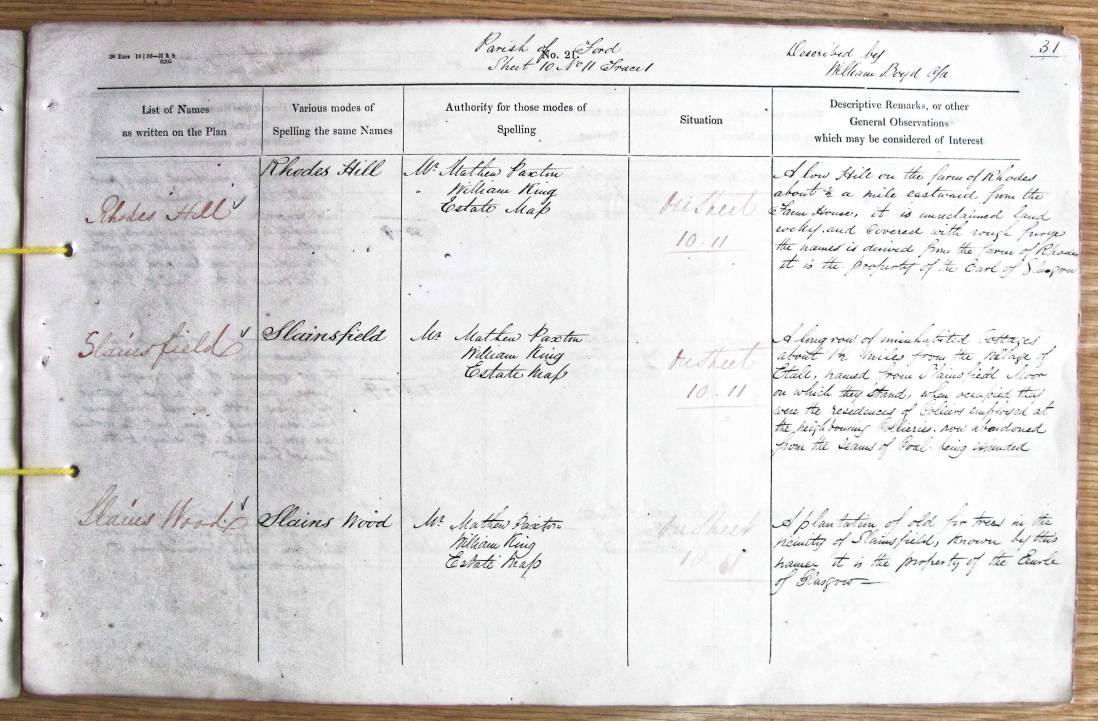 20 Rms 10 | 56—H & S
6205
Parish of Ford
No. 21.
Sheet 10 No 11 Trace 1
Described by
William Boyd C/a
31
List of Names
as written on the Plan
Various modes of
Spelling the same Names
Authority for those modes of
Spelling
Situation
Descriptive Remarks, or other
General Observations
which may be considered of Interest
Rhodes Hill
Rhodes Hill
Mr. Mathew Paxton
" William King
Estate Map
On Sheet
10 . 11
A low Hill on the farm of Rhodes
about ½ a mile eastward from the
Farm House, it is unreclaimed land
rocky and Covered with rough furze
the names is derived from the farm of Rhodes
it is the property of the Earl of Glasgow
Slainsfield
Slainsfield
Mr. Mathew Paxton
William King
Estate Map
On Sheet
10 . 11
A long row of uninhabited Cottages
about 1½ Miles from the Village of
Etall, named from Slainsfield Moor
on which they stand, when occupied they
were the residences of Colliers employed at
the neighbouring Collieries. now abandoned
from the seams of Coal being
Slains Wood
Slains Wood
Mr. Mathew Paxton
William King
Estate Map
On Sheet
10
A plantation of old fir trees in the
vicinity of Slainsfield, known by this
name it is the property of the Earle
of Glasgow—